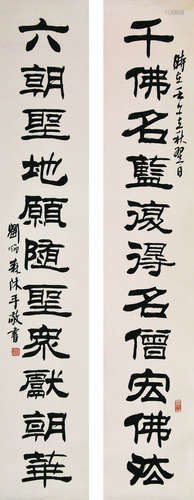 千佛名藍復得名僧宏佛法
時在壬午立秋翌日
六朝聖地願随聖衆獻朝華
劉炳森沐手敬書